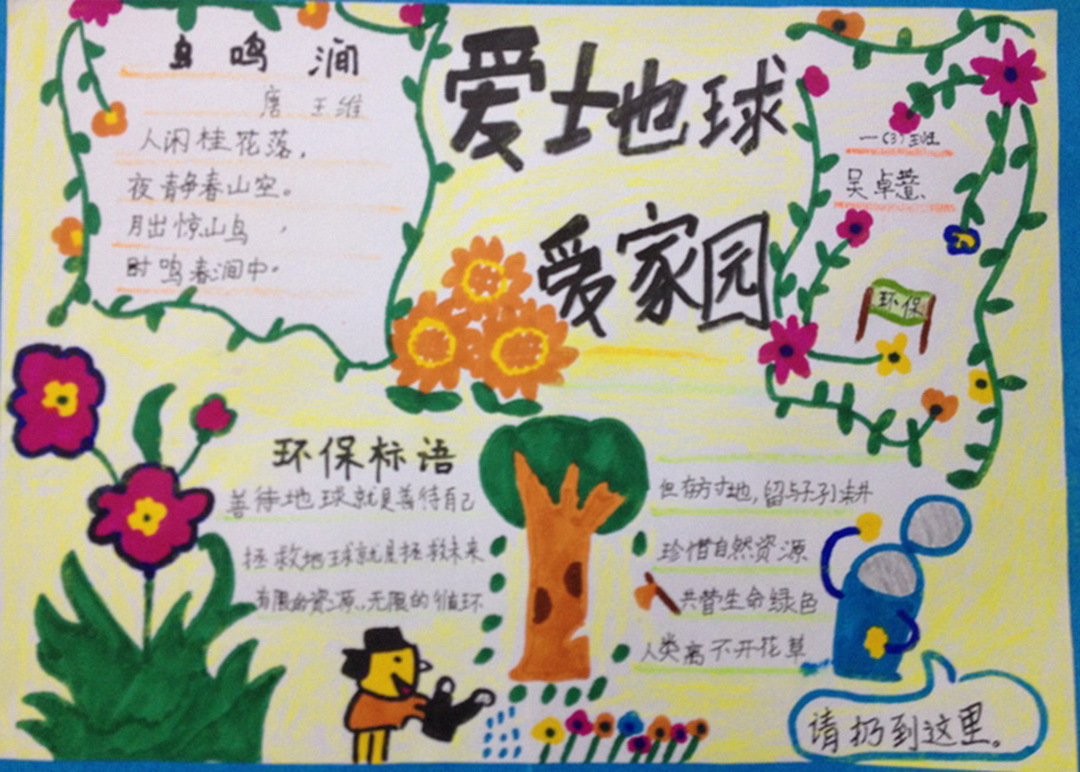 鸟鸣涧
唐 王维
人闲桂花落，
夜静春山空。
月出惊山鸟，
时鸣春涧中。
爱地球
爱家园
一(3)班
环保
环保标语
善待地球就是善待自己
拯救地球就是拯救未来
有限的资源，无限的循环
但存方寸地，留与子孙耕
珍惜自然资源
共营生命绿色
人类离不开花草
请扔到这里。